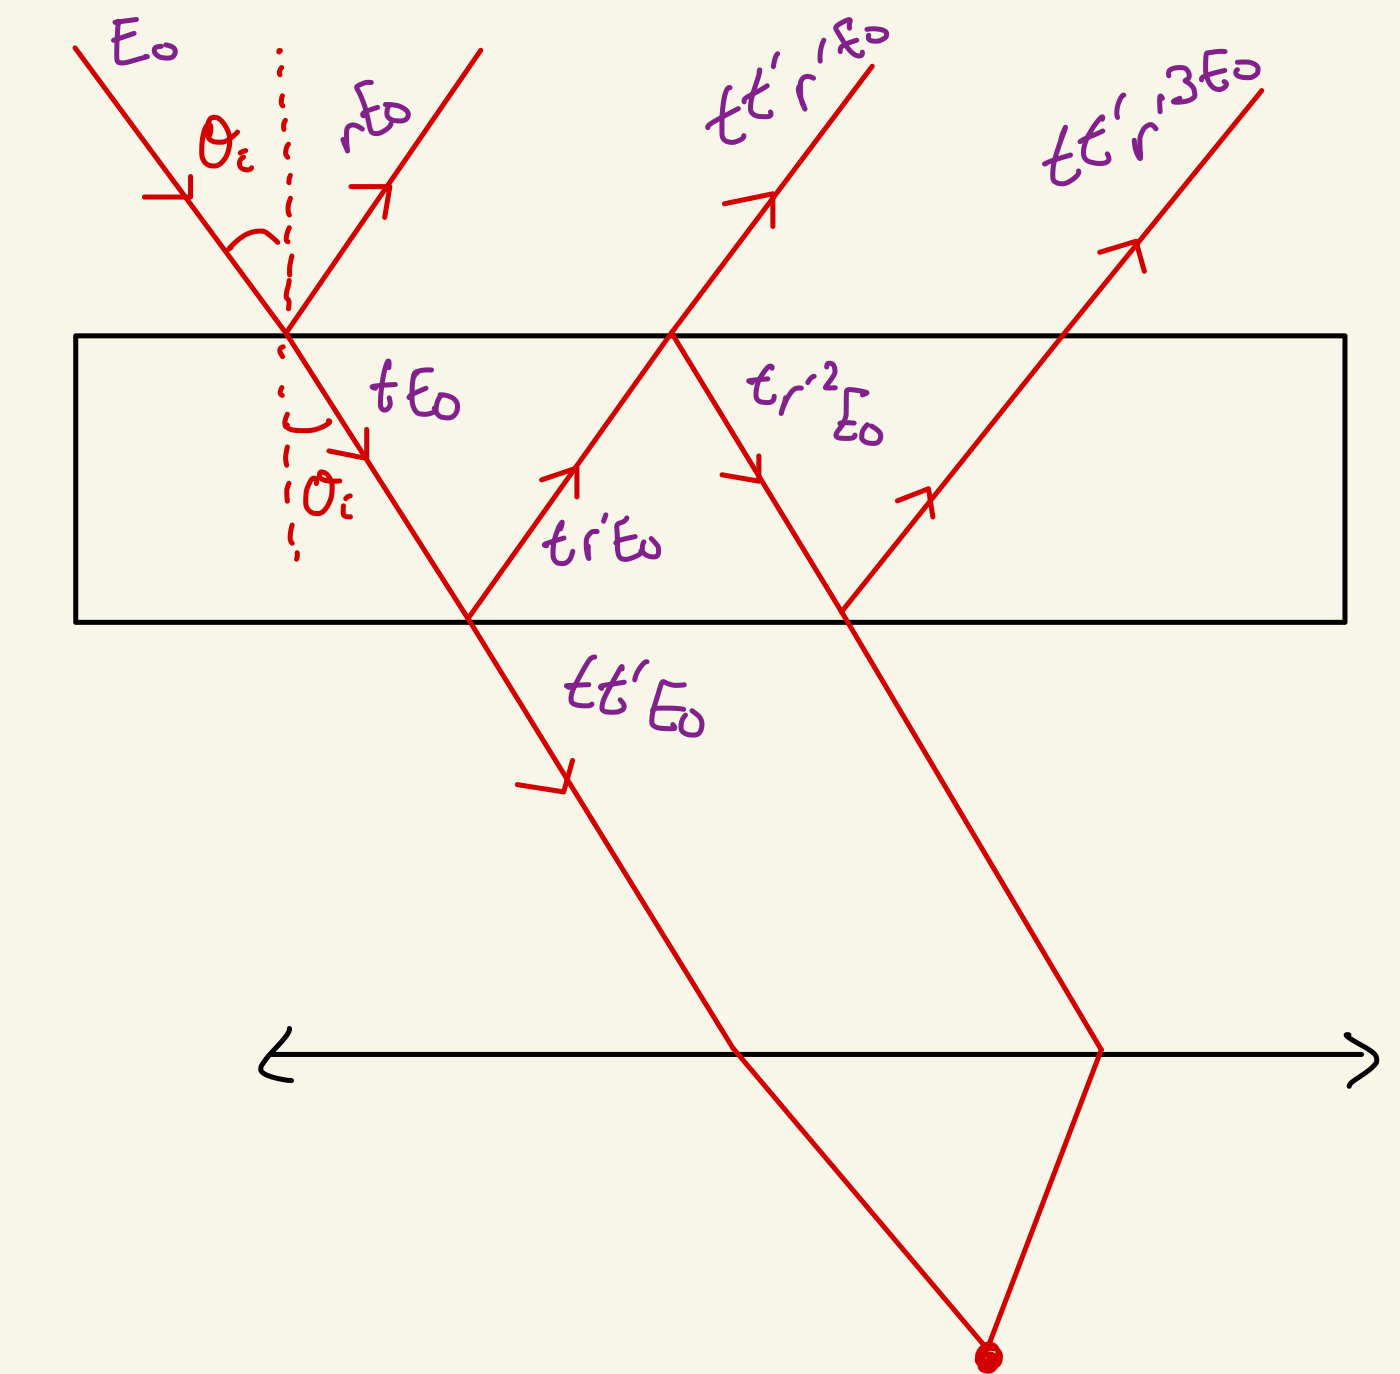 E₀
rE₀
tt'r'E₀
tt'r'³E₀
θᵢ
tE₀
tr'²E₀
θᵢ
tr'E₀
tt'E₀